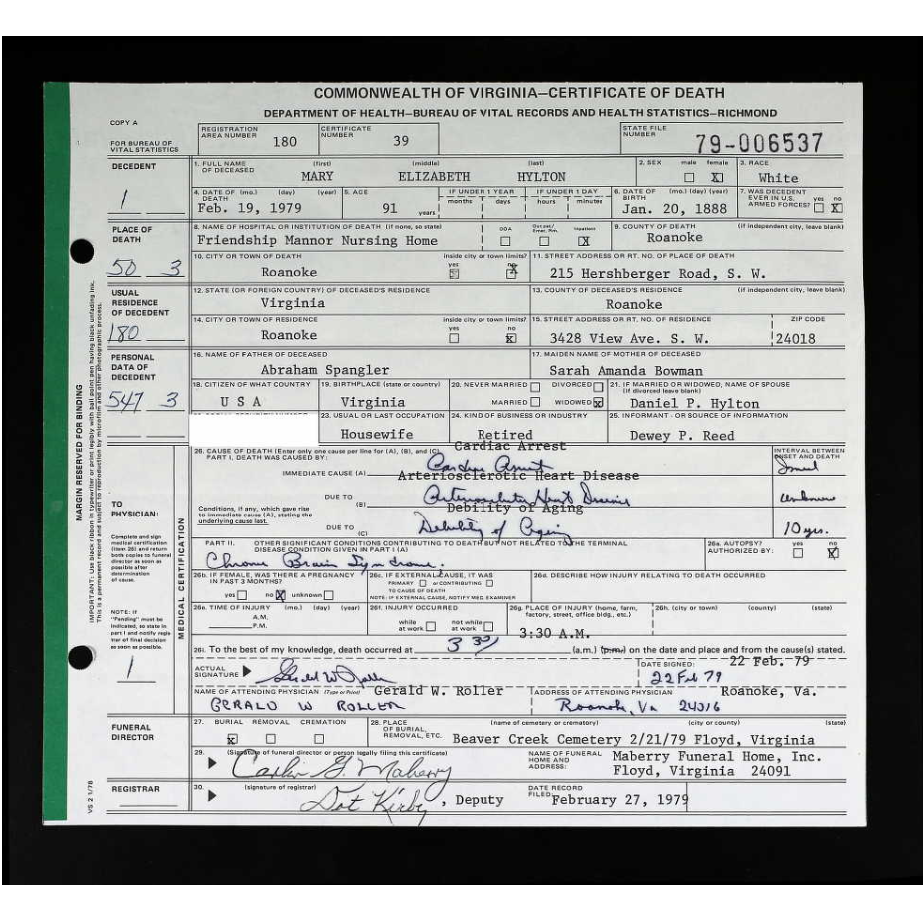 COMMONWEALTH OF VIRGINIA—CERTIFICATE OF DEATH
DEPARTMENT OF HEALTH—BUREAU OF VITAL RECORDS AND HEALTH STATISTICS—RICHMOND
COPY A
FOR BUREAU OF VITAL STATISTICS
REGISTRATION AREA NUMBER 180 CERTIFICATE NUMBER 39 STATE FILE NUMBER 79-006537
DECEDENT
1
1. FULL NAME OF DECEASED (first) MARY (middle) ELIZABETH (last) HYLTON 2. SEX male female X 3. RACE White
4. DATE OF DEATH (mo.) (day) (year) Feb. 19, 1979 5. AGE 91 years IF UNDER 1 YEAR months days IF UNDER 1 DAY hours minutes 6. DATE OF BIRTH (mo.) (day) (year) Jan. 20, 1888 7. WAS DECEDENT EVER IN U.S. ARMED FORCES? yes no X
PLACE OF DEATH
50 3
8. NAME OF HOSPITAL OR INSTITUTION OF DEATH (if none, so state) Friendship Mannor Nursing Home DOA Out-pat/ Emer. Rm. Inpatient X 9. COUNTY OF DEATH (if independent city, leave blank) Roanoke
10. CITY OR TOWN OF DEATH Roanoke inside city or town limits? yes no 11. STREET ADDRESS OR RT. NO. OF PLACE OF DEATH 215 Hershberger Road, S. W.
USUAL RESIDENCE OF DECEDENT
180
12. STATE (OR FOREIGN COUNTRY) OF DECEASED'S RESIDENCE Virginia 13. COUNTY OF DECEASED'S RESIDENCE (if independent city, leave blank) Roanoke
14. CITY OR TOWN OF RESIDENCE Roanoke inside city or town limits? yes no X 15. STREET ADDRESS OR RT. NO. OF RESIDENCE 3428 View Ave. S. W. ZIP CODE 24018
PERSONAL DATA OF DECEDENT
547 3
16. NAME OF FATHER OF DECEASED Abraham Spangler 17. MAIDEN NAME OF MOTHER OF DECEASED Sarah Amanda Bowman
18. CITIZEN OF WHAT COUNTRY U S A 19. BIRTHPLACE (state or country) Virginia 20. NEVER MARRIED DIVORCED MARRIED WIDOWED X 21. IF MARRIED OR WIDOWED, NAME OF SPOUSE (if divorced leave blank) Daniel P. Hylton
23. USUAL OR LAST OCCUPATION Housewife 24. KIND OF BUSINESS OR INDUSTRY Retired 25. INFORMANT - OR SOURCE OF INFORMATION Dewey P. Reed
MARGIN RESERVED FOR BINDING
IMPORTANT: Use black ribbon in typewriter or print legibly with ball point pen having black unfading ink.
This is a permanent record and subject to reproduction by microfilm and other photographic process.
MEDICAL CERTIFICATION
TO PHYSICIAN:
Complete and sign medical certification (item 26) and return both copies to funeral director as soon as possible after determination of cause.
NOTE: If "Pending" must be indicated, so state in part I and notify registrar of final decision as soon as possible.
1
26. CAUSE OF DEATH (Enter only one cause per line for (A), (B), and (C). INTERVAL BETWEEN ONSET AND DEATH
PART I. DEATH WAS CAUSED BY:
Cardiac Arrest
IMMEDIATE CAUSE (A) Cardiac Arrest
Arteriosclerotic Heart Disease
DUE TO (B) Arteriosclerotic Heart Disease unknown
Conditions, if any, which gave rise to immediate cause (A), stating the underlying cause last.
Debility of Aging
DUE TO (C) Debility of Aging 10 yrs.
PART II. OTHER SIGNIFICANT CONDITIONS CONTRIBUTING TO DEATH BUT NOT RELATED TO THE TERMINAL DISEASE CONDITION GIVEN IN PART I (A) 26a. AUTOPSY? AUTHORIZED BY: yes no X
Chronic Brain Syndrome.
26b. IF FEMALE, WAS THERE A PREGNANCY IN PAST 3 MONTHS? yes no X unknown 26c. IF EXTERNAL CAUSE, IT WAS PRIMARY or CONTRIBUTING TO CAUSE OF DEATH NOTE: IF EXTERNAL CAUSE, NOTIFY MED. EXAMINER 26d. DESCRIBE HOW INJURY RELATING TO DEATH OCCURRED
26e. TIME OF INJURY (mo.) (day) (year) A.M. P.M. 26f. INJURY OCCURRED while at work not while at work 26g. PLACE OF INJURY (home, farm, factory, street, office bldg., etc.) 26h. (city or town) (county) (state)
3:30 A.M.
26i. To the best of my knowledge, death occurred at 3 30 (a.m.) (p.m.) on the date and place and from the cause(s) stated.
22 Feb. 79
ACTUAL SIGNATURE Gerald W Roller DATE SIGNED: 22 Feb 79
NAME OF ATTENDING PHYSICIAN (Type or Print) Gerald W. Roller ADDRESS OF ATTENDING PHYSICIAN Roanoke, Va.
GERALD W ROLLER Roanoke, Va 24016
FUNERAL DIRECTOR
27. BURIAL X REMOVAL CREMATION 28. PLACE OF BURIAL, REMOVAL, ETC. (name of cemetery or crematory) (city or county) (state) Beaver Creek Cemetery 2/21/79 Floyd, Virginia
29. (Signature of funeral director or person legally filing this certificate) NAME OF FUNERAL HOME AND ADDRESS: Maberry Funeral Home, Inc.
Floyd, Virginia 24091
REGISTRAR
30. (signature of registrar) Dot Kirby, Deputy DATE RECORD FILED: February 27, 1979
VS 2 1/78